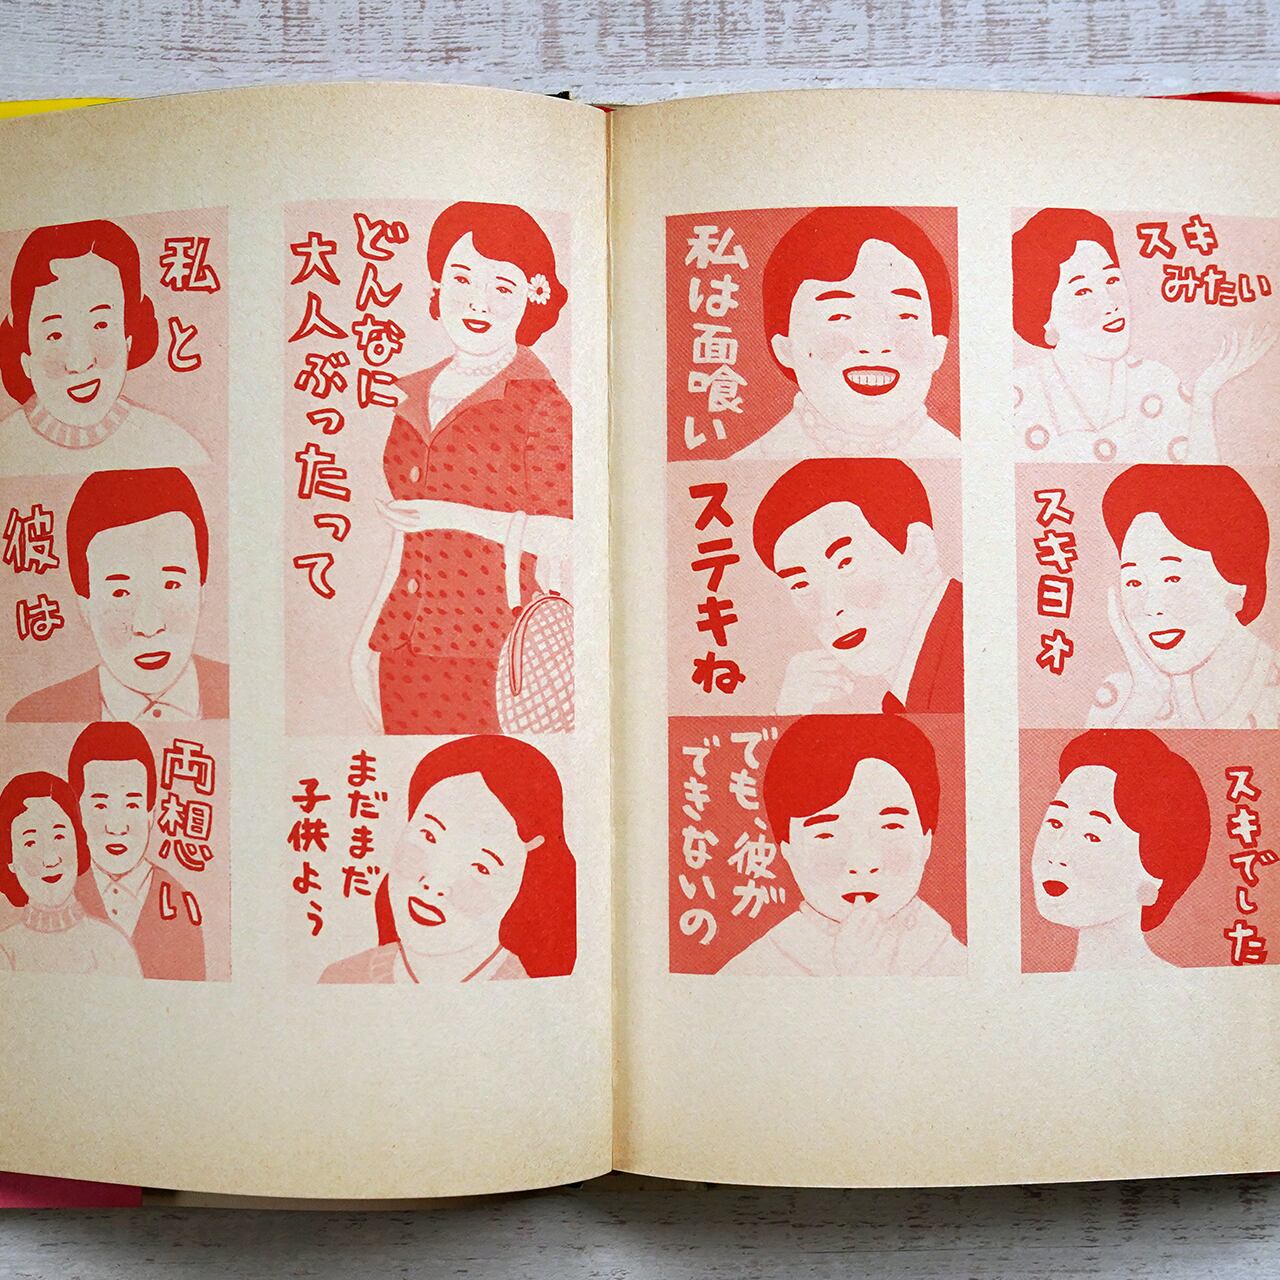 スキ
みたい
スキヨォ
スキでした
私は面喰い
ステキね
でも、彼が
できないの
どんなに
大人ぶったって
まだまだ
子供よぅ
私と
彼は
両想い